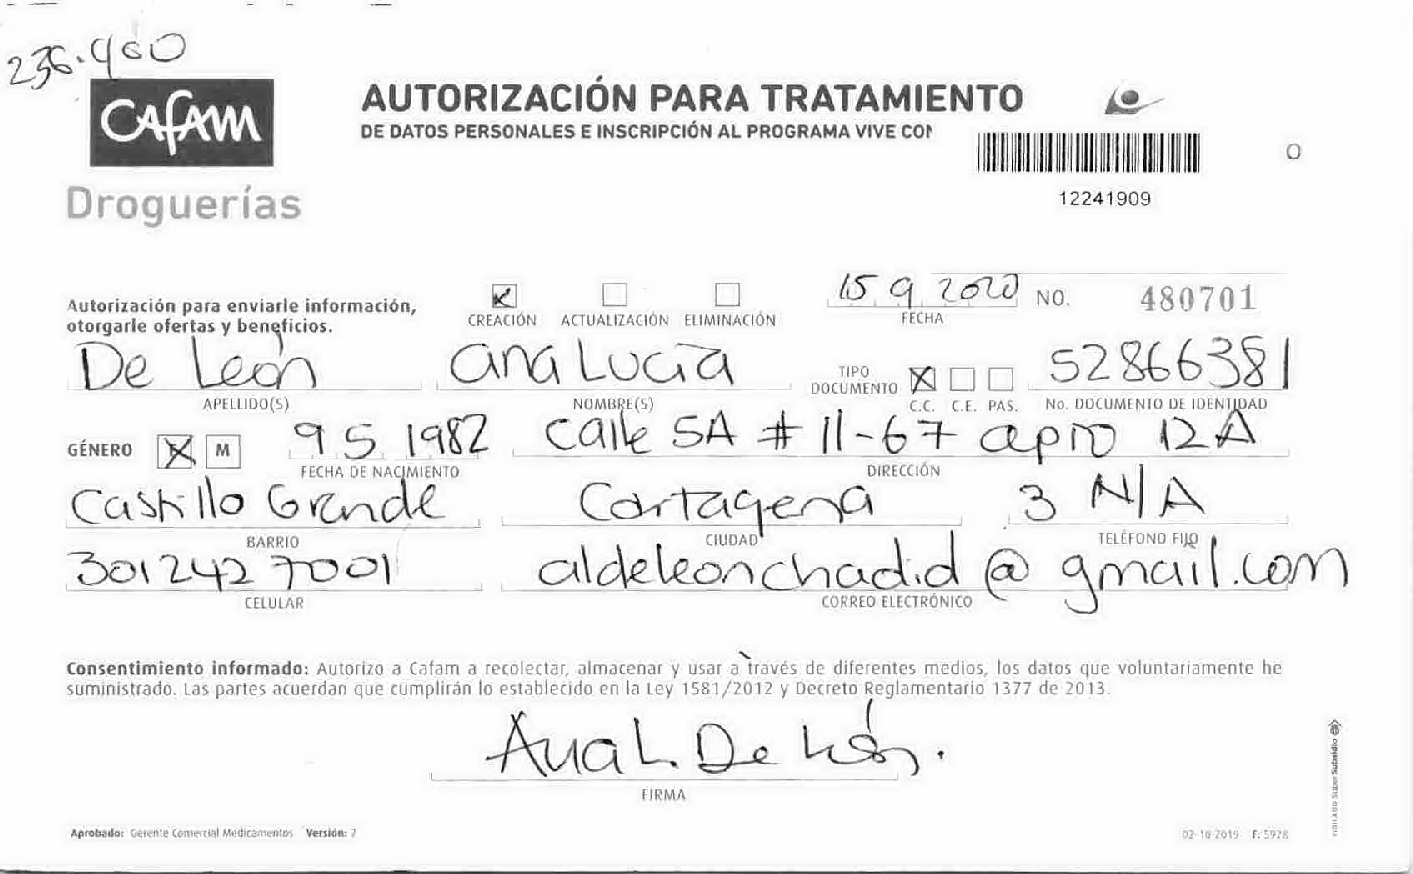 236.400
CAFAM
Droguerías
AUTORIZACIÓN PARA TRATAMIENTO
DE DATOS PERSONALES E INSCRIPCIÓN AL PROGRAMA VIVE CON
12241909
Autorización para enviarle información,
otorgarle ofertas y beneficios.
CREACIÓN ACTUALIZACIÓN ELIMINACIÓN
15 9 2020
FECHA
NO. 480701
De León Ana Lucia TIPO DOCUMENTO X 52866381
APELLIDO(S) NOMBRE(S) C.C. C.E. PAS. No. DOCUMENTO DE IDENTIDAD
GÉNERO X M 9 5 1982 Calle 5A # 11-67 apto 12A
FECHA DE NACIMIENTO DIRECCIÓN
Castillo Grande Cartagena 3 N/A
BARRIO CIUDAD TELÉFONO FIJO
301242 7001 aldeleonchadid@gmail.com
CELULAR CORREO ELECTRÓNICO
Consentimiento informado: Autorizo a Cafam a recolectar, almacenar y usar a través de diferentes medios, los datos que voluntariamente he
suministrado. Las partes acuerdan que cumplirán lo establecido en la Ley 1581/2012 y Decreto Reglamentario 1377 de 2013.
Ana L. De León.
FIRMA
Aprobado: Gerente Comercial Medicamentos Versión: 7
02-10-2019 F: 5928
VIGILADO SuperSubsidio